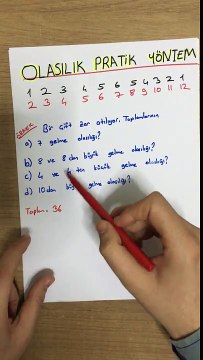 OLASILIK PRATİK YÖNTEM
1 2 3 4 5 6 5 4 3 2 1
2 3 4 5 6 7 8 9 10 11 12
ÖRNEK Bir çift zar atılıyor. Toplamlarının
a) 7 gelme olasılığı?
b) 8 ve 8 den büyük gelme olasılığı?
c) 4 ve ten küçük gelme olasılığı?
d) 10 dan gelme olasılığı?
Toplam = 36